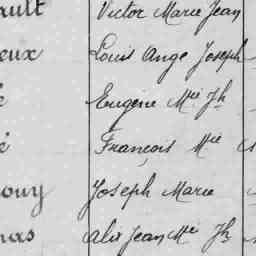 ault Victor Marie Jean
eux Louis Ange Joseph
é Eugène Mie Jh
é François Mie
ouy Joseph Marie
nas alix Jean Mie Jh